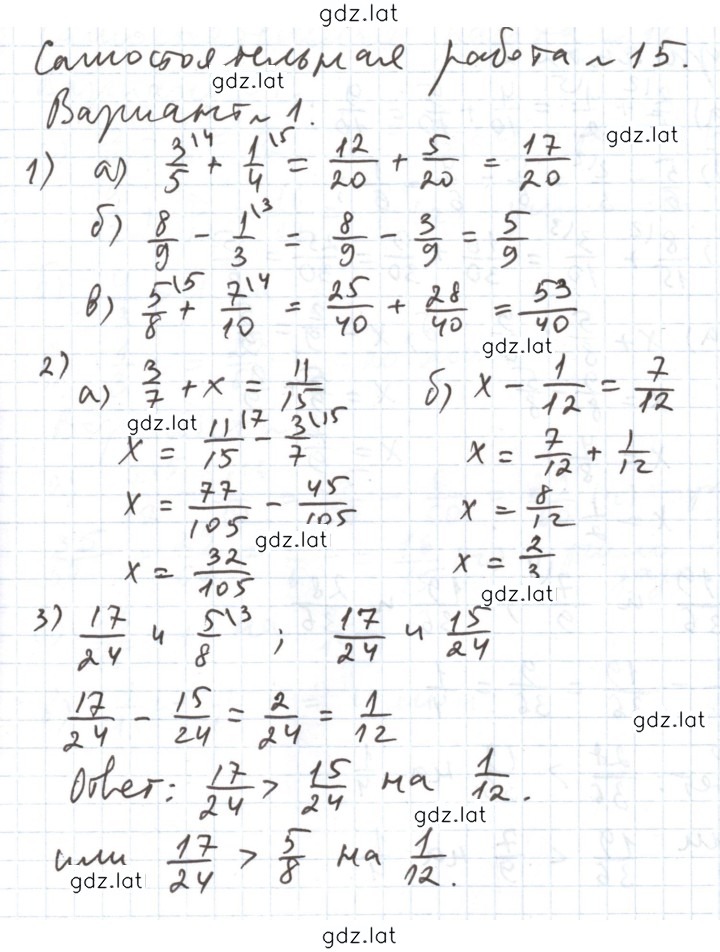 gdz.lat
Самостоятельная работа № 15.
gdz.lat
Вариант № 1.
gdz.lat
1) а) 3/5\4 + 1/4\5 = 12/20 + 5/20 = 17/20
б) 8/9 - 1/3\3 = 8/9 - 3/9 = 5/9
в) 5/8\5 + 7/10\4 = 25/40 + 28/40 = 53/40
gdz.lat
2) а) 3/7 + x = 11/15 б) x - 1/12 = 7/12
gdz.lat
x = 11/15\7 - 3/7\15 x = 7/12 + 1/12
x = 77/105 - 45/105 x = 8/12
gdz.lat
x = 32/105 x = 2/3
gdz.lat
3) 17/24 и 5/8\3 ; 17/24 и 15/24
17/24 - 15/24 = 2/24 = 1/12
gdz.lat
Ответ: 17/24 > 15/24 на 1/12.
gdz.lat
или 17/24 > 5/8 на 1/12.
gdz.lat
gdz.lat